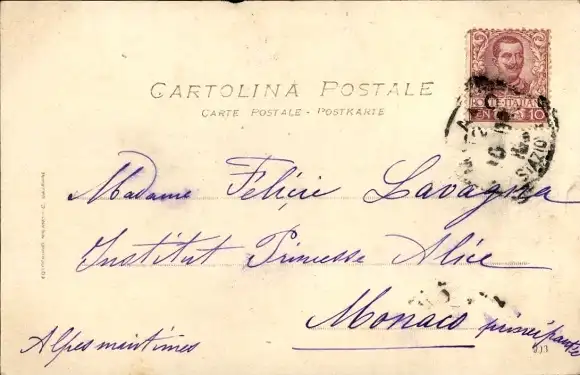 POSTE ITALIANE
CENT. 10
CARTOLINA POSTALE
CARTE POSTALE - POSTKARTE
Madame Félicie Lavagna
Institut Princesse Alice
Monaco principauté
Alpes maritimes